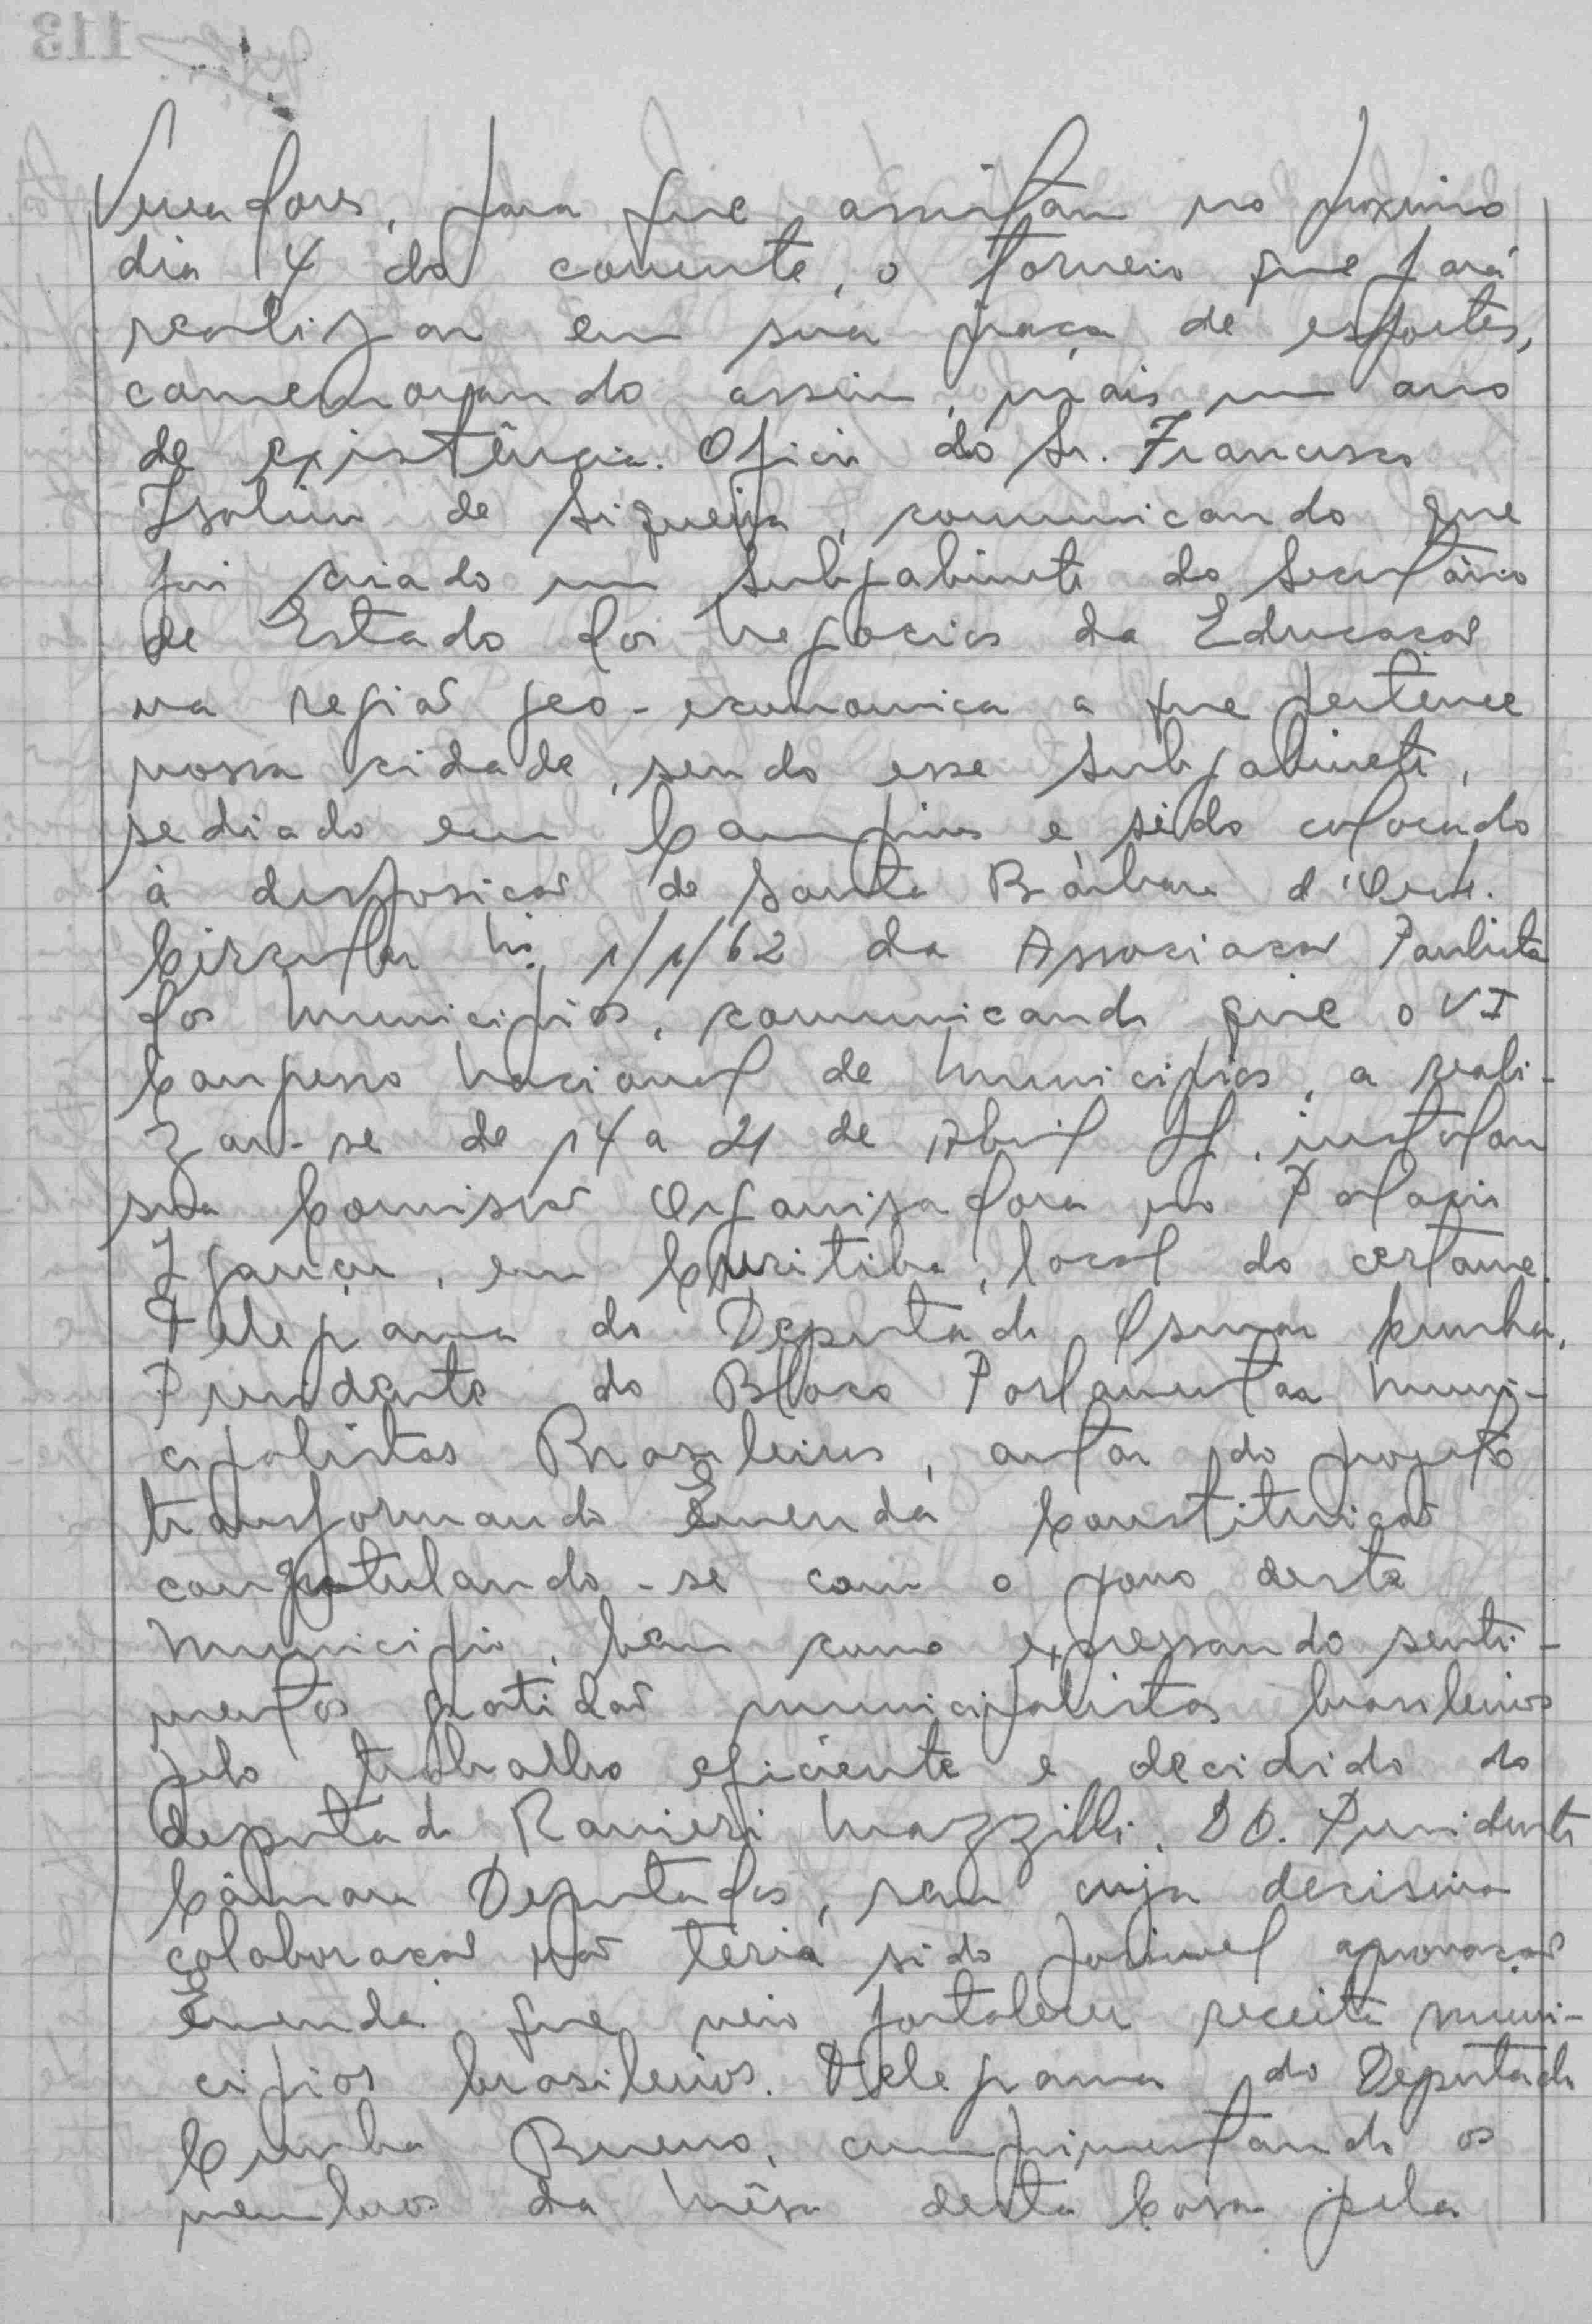 Vereadores, para que assistam no proximo
dia 4 do corrente, o torneio que fará
realizar em sua praça de esportes,
comemorando assim, mais um ano
de existência. Oficio do Sr. Francisco
Isolino de Siqueira, comunicando que
foi criado um Subgabinete do Secretário
de Estado dos Negocios da Educação
na região geo-economica a que pertence
nossa cidade, sendo esse Subgabinete,
sediado em Campinas e sido colocado
à disposição de Santa Bárbara d'Oeste.
Circular nº 1/1/62 da Associação Paulista
dos Municipios, comunicando que o VI
Congresso Nacional de Municipios, a reali-
zar-se de 14 a 21 de Abril pf, instalou
sua Comissão Organisadora no Palacio
Iguaçu, em Curitiba, local do certame.
Telegrama do Deputado Osmar Cunha,
Presidente do Bloco Parlamentar Muni-
cipalistas Brasileiros, autor do projeto
transformando Emenda Constituição
congratulando-se com o povo deste
Municipio, bem como expressando senti-
mentos gratidão municipalistas brasileiros
pelo trabalho eficiente e decidido do
deputado Ranieri Mazzilli, DD. Presidente
Câmara Deputados, sem cuja decisiva
colaboração não teria sido possivel aprovação
Emenda que veio fortalecer receita muni-
cipios brasileiros. Telegrama do Deputado
Cunha Bueno, cumprimentando os
membros da Mêsa desta Casa pela
113